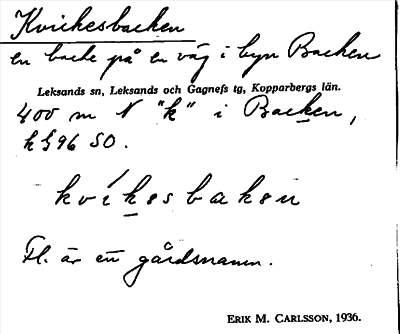 Kvickesbacken
en backe på en väg i byn Backen
Leksands sn, Leksands och Gagnefs tg, Kopparbergs län.
400 m N "k" i Backen,
k § 96 SO.
kvíkesbaken
Fl. är ett gårdsnamn.
ERIK M. CARLSSON, 1936.